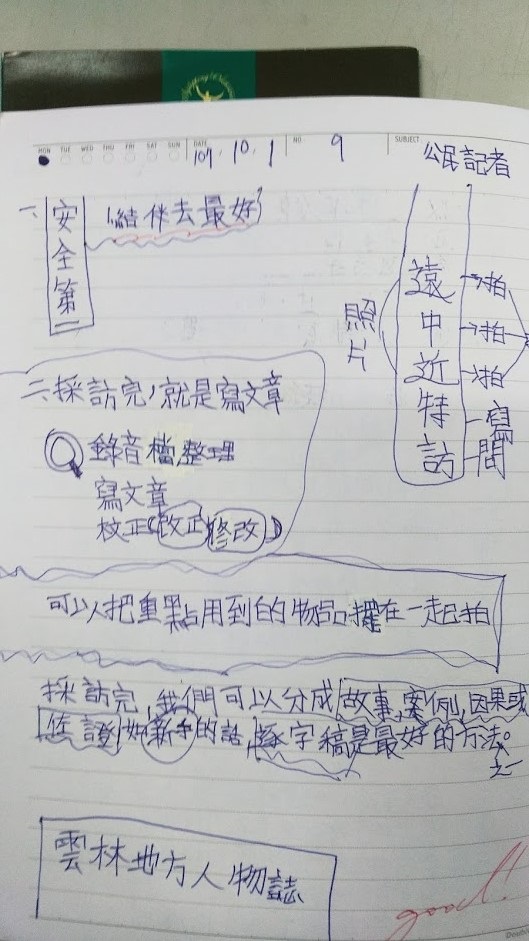 MON TUE WED THU FRI SAT SUN DATE 107. 10. 1 NO 9 SUBJECT 公民記者
一、安全第一 (結伴去最好)
照片
遠→拍
中→拍
近→拍
特寫
訪問
二、採訪完,就是寫文章
錄音檔整理
寫文章
校正(改正修改)
可以把重點用到的物品擺在一起拍
採訪完,我們可以分成故事,案例,因果或
佐證,如新手的話,逐字稿是最好的方法。
之一
雲林地方人物誌
good!